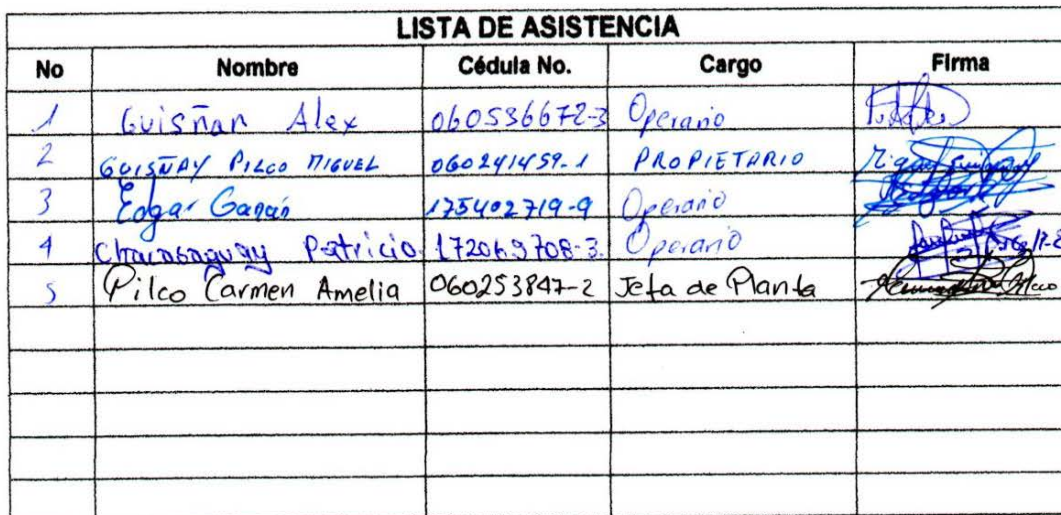 LISTA DE ASISTENCIA
No Nombre Cédula No. Cargo Firma
1 Guisñan Alex 060536672-3 Operario
2 GUISÑAY PILCO MIGUEL 060241459-1 PROPIETARIO
3 Edgar Gagán 175402719-9 Operario
4 Patricio 172069708-3 Operario
5 Pilco Carmen Amelia 060253847-2 Jefa de Planta